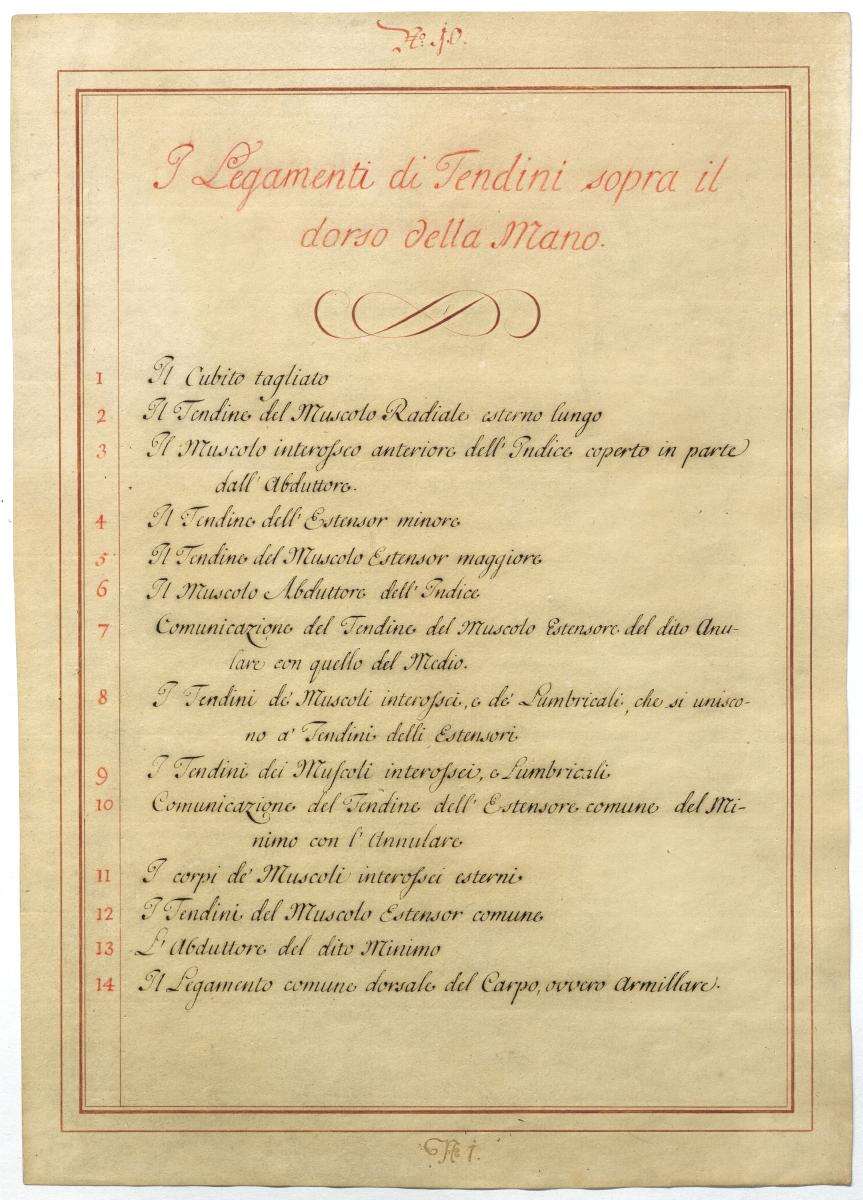 No. 10.
I Legamenti di Tendini sopra il
dorso della Mano.
1 Il Cubito tagliato
2 Il Tendine del Muscolo Radiale esterno lungo
3 Il Muscolo interosseo anteriore dell' Indice coperto in parte
dall' Abduttore.
4 Il Tendine dell' Estensor minore
5 Il Tendine del Muscolo Estensor maggiore
6 Il Muscolo Abduttore dell' Indice
7 Comunicazione del Tendine del Muscolo Estensore del dito Anu-
lare con quello del Medio.
8 I Tendini de' Muscoli interossei, e de' Lumbricali, che si unisco-
no a' Tendini delli Estensori
9 I Tendini dei Muscoli interossei, e Lumbricali
10 Comunicazione del Tendine dell' Estensore comune del Mi-
nimo con l' Annulare
11 I corpi de' Muscoli interossei esterni
12 I Tendini del Muscolo Estensor comune
13 L' Abduttore del dito Minimo
14 Il Legamento comune dorsale del Carpo, ovvero Armillare.
No. 1.